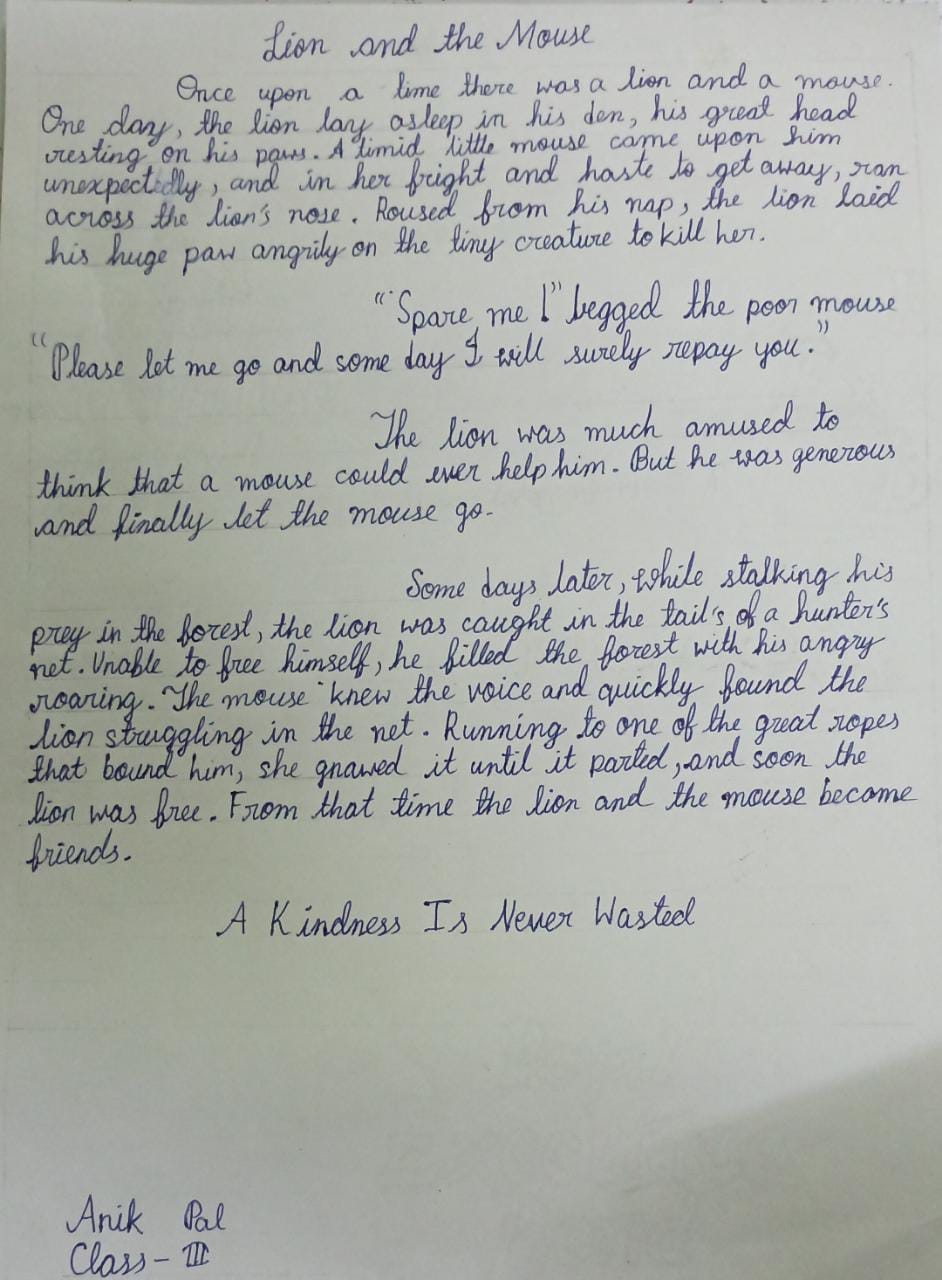 Lion and the Mouse
Once upon a time there was a lion and a mouse.
One day, the lion lay asleep in his den, his great head
resting on his paws. A timid little mouse came upon him
unexpectedly, and in her fright and haste to get away, ran
across the lion's nose. Roused from his nap, the lion laid
his huge paw angrily on the tiny creature to kill her.
"Spare me!" begged the poor mouse
"Please let me go and some day I will surely repay you."
The lion was much amused to
think that a mouse could ever help him. But he was generous
and finally let the mouse go.
Some days later, while stalking his
prey in the forest, the lion was caught in the tail's of a hunter's
net. Unable to free himself, he filled the forest with his angry
roaring. The mouse knew the voice and quickly found the
lion struggling in the net. Running to one of the great ropes
that bound him, she gnawed it until it parted, and soon the
lion was free. From that time the lion and the mouse become
friends.
A Kindness Is Never Wasted
Anik Pal
Class - III